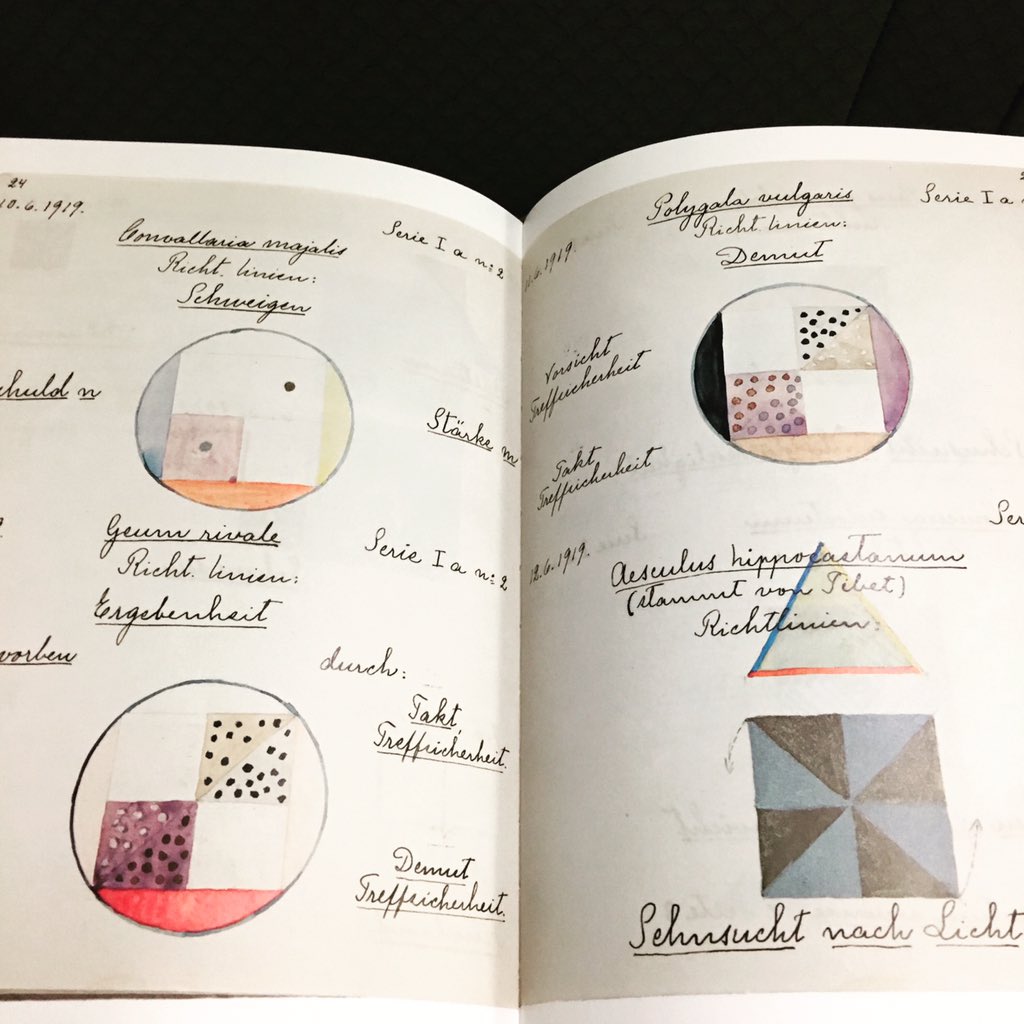 24
10.6.1919.
Serie I a n:2
Convallaria majalis
Richt. linien:
Schweigen
chuld n
Stärke m
Geum rivale
Serie I a n:2
Richt. linien:
Ergebenheit
vorben
durch:
Takt,
Treffsicherheit.
Demut
Treffsicherheit.
Polygala vulgaris
Serie I a
Richt. linien:
.6.1919.
Demut
Vorsicht
Treffsicherheit
Takt
Treffsicherheit
Ser
12.6.1919.
Aesculus hippocastanum
(stammt von Tibet)
Richtlinien:
Sehnsucht nach Licht